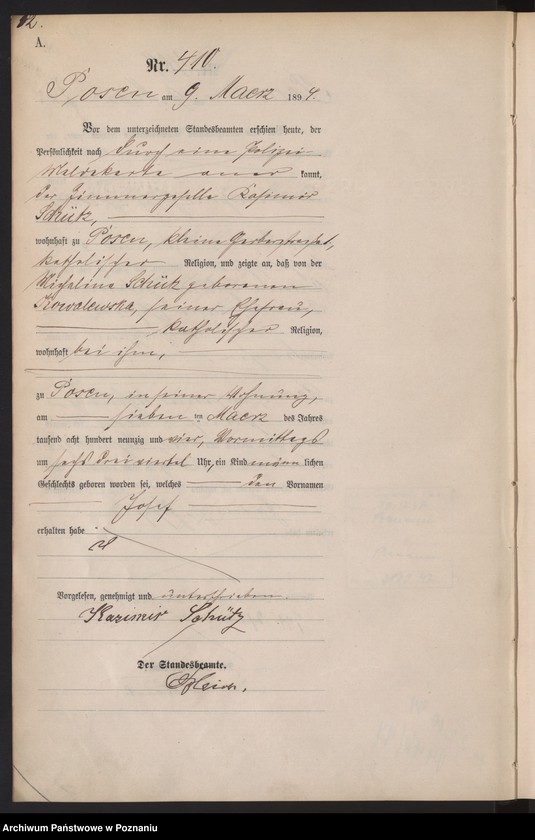 12.
A.
Nr. 410.
Posen am 9. Maerz 1894.
Vor dem unterzeichneten Standesbeamten erschien heute, der
Persönlichkeit nach durch eine Polizei
Meldekarte aner kannt,
der Zimmergeselle Kasimir
Schütz,
wohnhaft zu Posen, kleine Gerberstraße
katholischer Religion, und zeigte an, daß von der
Michalina Schütz geborenen
Kowalewska, seiner Ehefrau,
katholischer Religion,
wohnhaft bei ihm,
zu Posen, in seiner Wohnung,
am sieben ten Maerz des Jahres
tausend acht hundert neunzig und vier, Vormittags
um sechs dreiviertel Uhr, ein Kind männ lichen
Geschlechts geboren worden sei, welches den Vornamen
Josef
erhalten habe.
Vorgelesen, genehmigt und unterschrieben.
Kazimir Schütz
Der Standesbeamte.
Archiwum Państwowe w Poznaniu